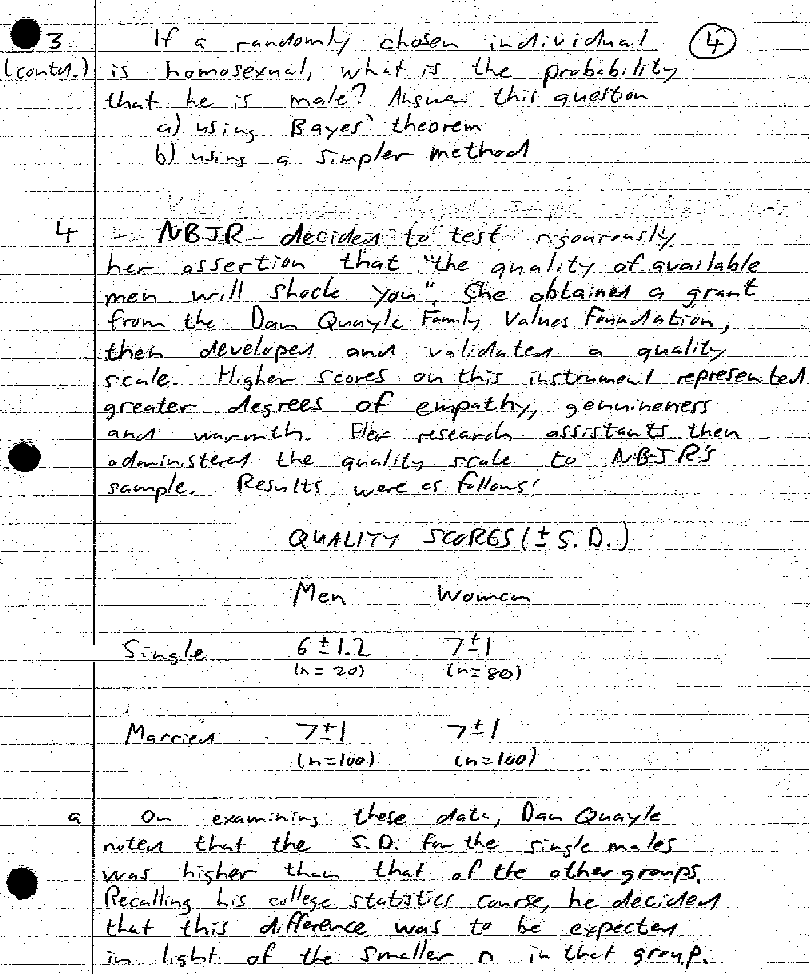 3 If a randomly chosen individual (4)
(contd.) is homosexual, what is the probability
that he is male? Answer this question
a) using Bayes' theorem
b) using a simpler method
4 - NBJR - decided to test rigourously
her assertion that "the quality of available
men will shock you". She obtained a grant
from the Dan Quayle Family Values Foundation,
then developed and validated a quality
scale. Higher scores on this instrument represented
greater degrees of empathy, genuineness
and warmth. Her research assistants then
administered the quality scale to NBJR's
sample. Results were as follows:
QUALITY SCORES (± S.D.)
Men Women
Single 6 ± 1.2 7 ± 1
(n = 20) (n = 80)
Married 7 ± 1 7 ± 1
(n = 100) (n = 100)
a On examining these data, Dan Quayle
noted that the S.D. for the single males
was higher than that of the other groups.
Recalling his college statistics course, he decided
that this difference was to be expected
in light of the smaller n in that group.